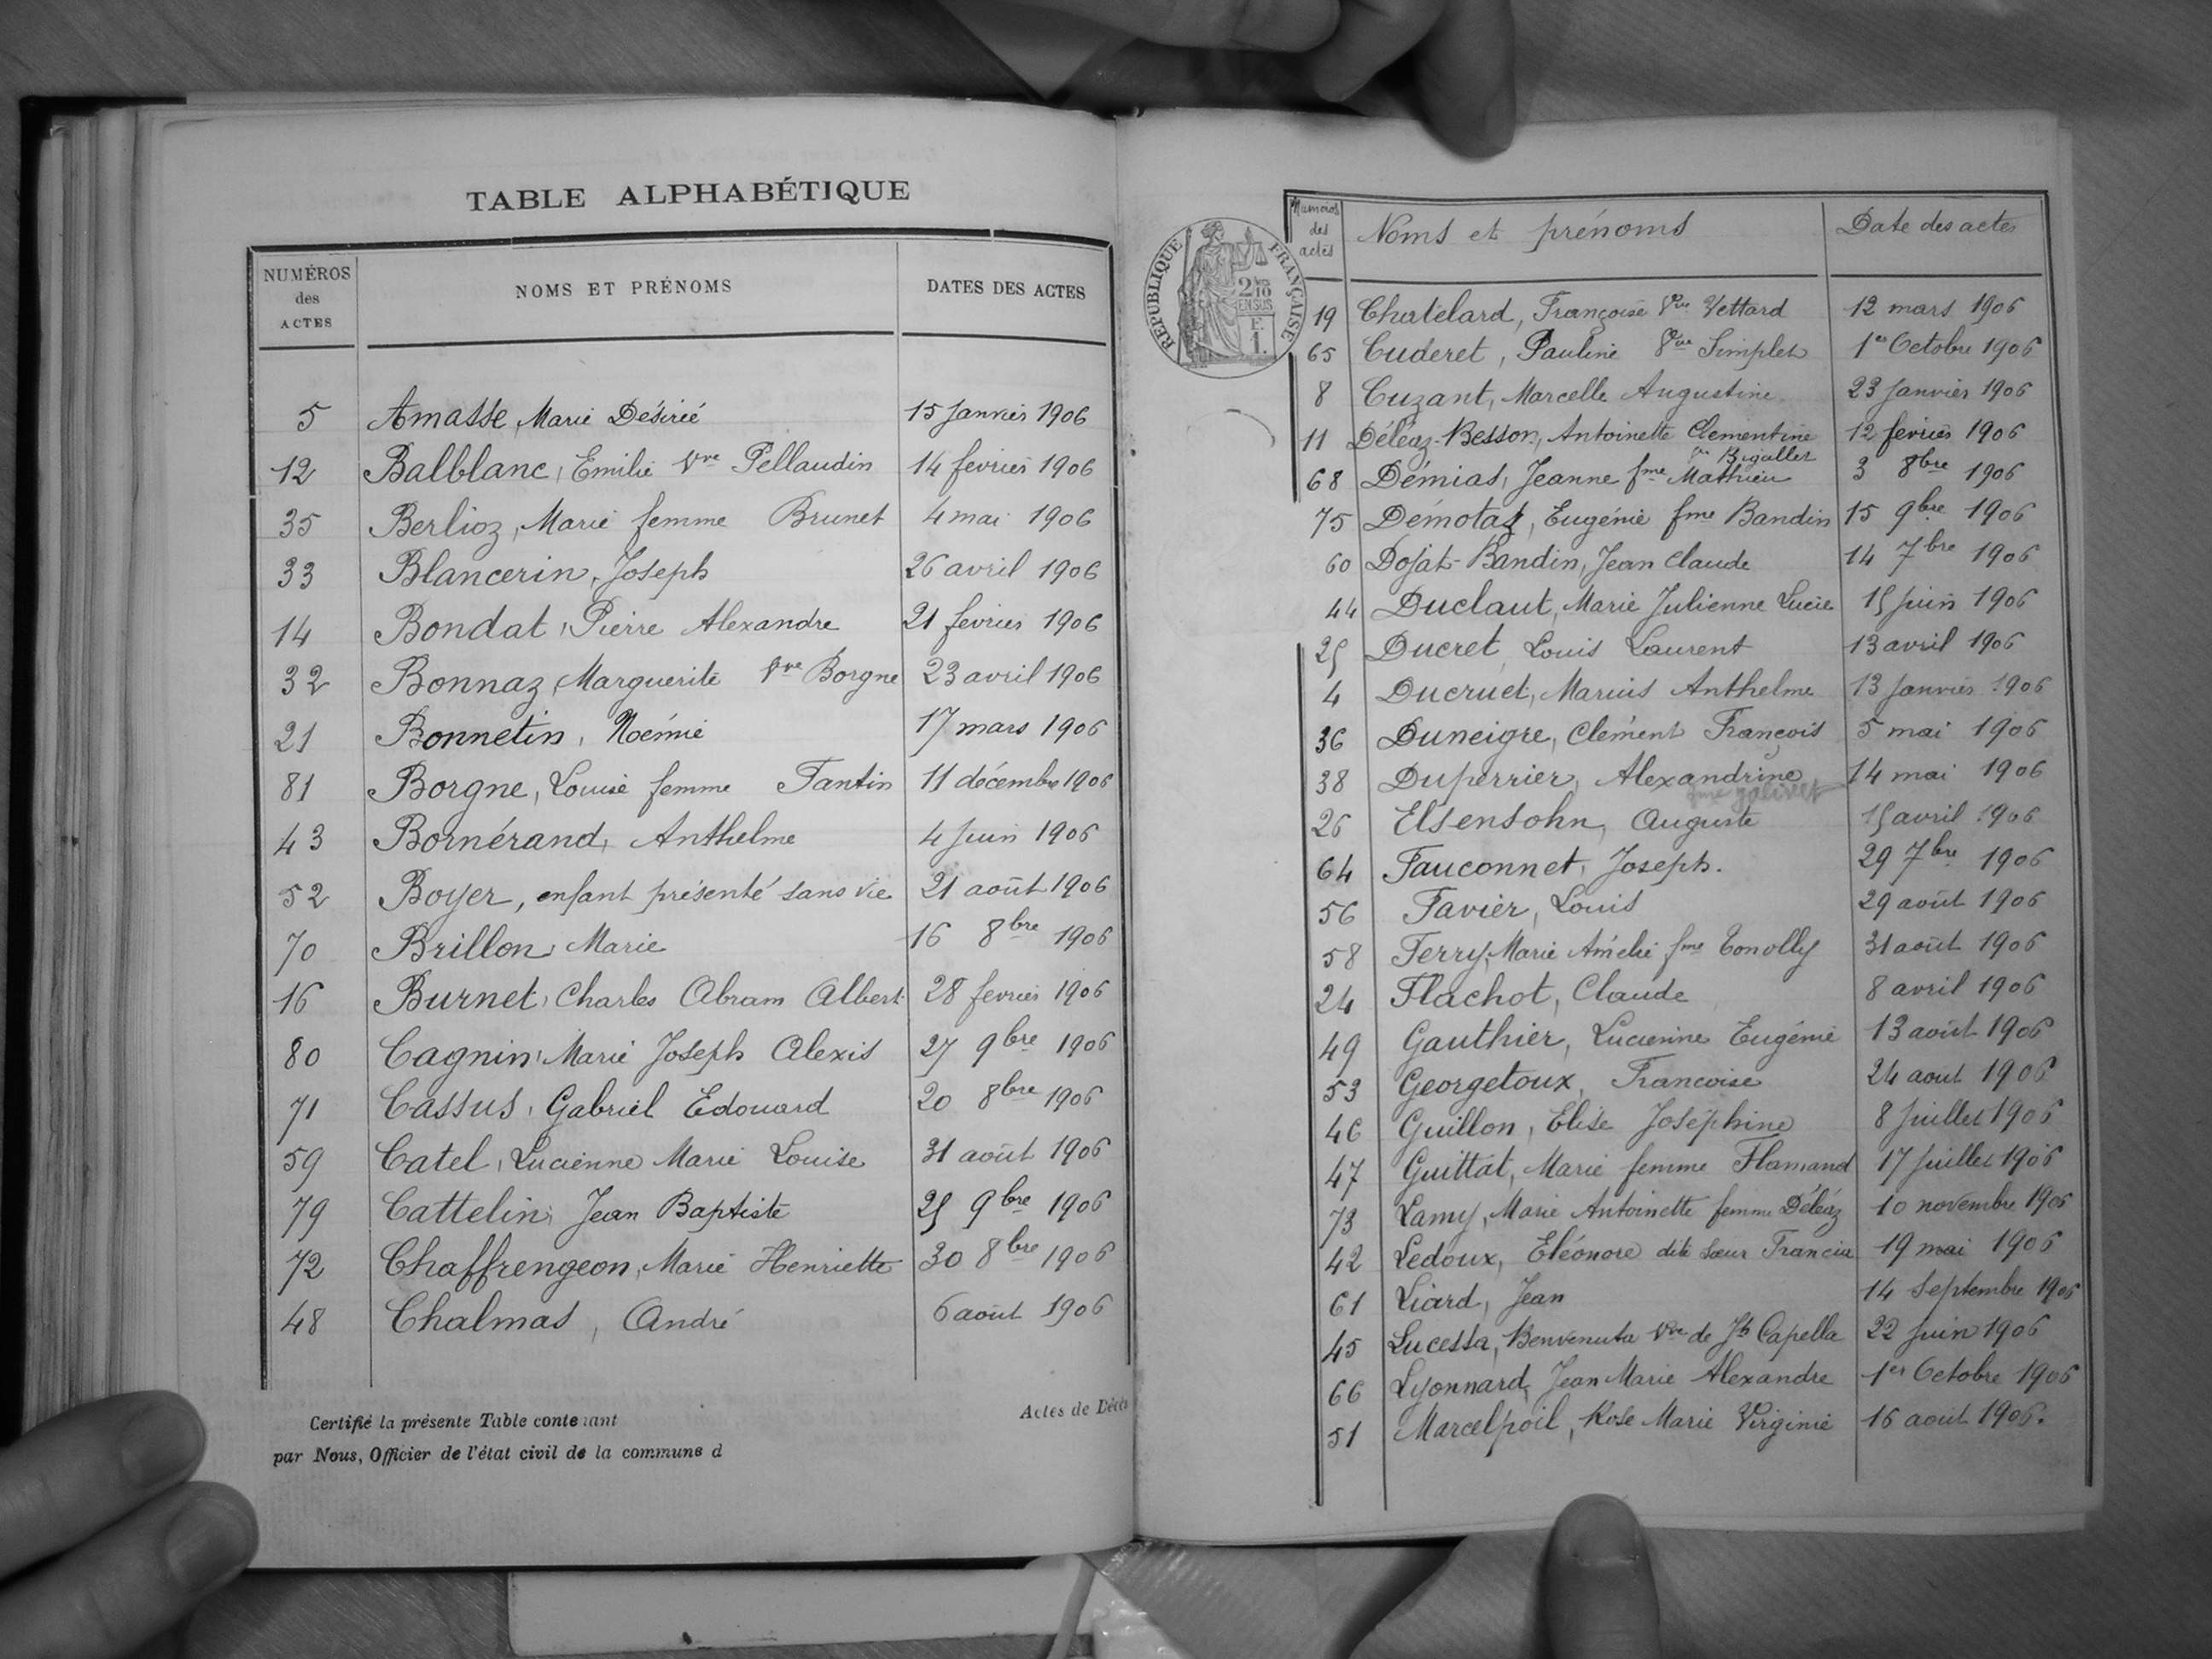 TABLE ALPHABÉTIQUE
NUMÉROS des ACTES NOMS ET PRÉNOMS DATES DES ACTES
5 Amasse, Marie Désirée 15 Janvier 1906
12 Balblanc, Emilie Vve Pellaudin 14 fevrier 1906
35 Berlioz, Marie femme Brunet 4 mai 1906
33 Blancerin, Joseph 26 avril 1906
14 Bondat, Pierre Alexandre 21 fevrier 1906
32 Bonnaz, Marguerite Vve Borgne 23 avril 1906
21 Bonnetin, Noémie 17 mars 1906
81 Borgne, Louise femme Fantin 11 décembre 1906
43 Bornérand, Anthelme 4 Juin 1906
52 Boyer, enfant présenté sans vie 21 août 1906
70 Brillon, Marie 16 8bre 1906
16 Burnet, Charles Abram Albert 28 fevrier 1906
80 Cagnin, Marie Joseph Alexis 27 9bre 1906
71 Cassus, Gabriel Edouard 20 8bre 1906
59 Catel, Lucienne Marie Louise 31 août 1906
79 Cattelin, Jean Baptiste 25 9bre 1906
72 Chaffrengeon, Marie Henriette 30 8bre 1906
48 Chalmas, André 6 août 1906
Certifié la présente Table contenant
par Nous, Officier de l'état civil de la commune d
Actes de Décès
RÉPUBLIQUE FRANÇAISE
2/10 EN SUS
F. 1.
Numéros des actes Noms et prénoms Date des actes
19 Chatelard, Françoise Vve Vettard 12 mars 1906
65 Cuderet, Pauline Vve Simplet 1er Octobre 1906
8 Cuzant, Marcelle Augustine 23 Janvier 1906
11 Déléaz-Besson, Antoinette Clementine 12 fevrier 1906
Bigallet
68 Démias, Jeanne fme Mathieu 3 8bre 1906
75 Démotaz, Eugénie fme Bandin 15 9bre 1906
60 Dojat-Bandin, Jean Claude 14 7bre 1906
44 Duclaut, Marie Julienne Lucie 15 Juin 1906
25 Ducret, Louis Laurent 13 avril 1906
4 Ducruet, Marius Anthelme 13 Janvier 1906
36 Duneigre, Clément François 5 mai 1906
38 Duperrier, Alexandrine 14 mai 1906
fme
26 Elsensohn, Auguste 15 avril 1906
64 Fauconnet, Joseph. 29 7bre 1906
56 Favier, Louis 29 août 1906
58 Ferry, Marie Amélie fme Tonolly 31 août 1906
24 Flachot, Claude 8 avril 1906
49 Gauthier, Lucienne Eugénie 13 août 1906
53 Georgetoux, Francoise 24 aout 1906
46 Guillon, Elise Joséphine 8 Juillet 1906
47 Guittat, Marie femme Flamand 17 Juillet 1906
73 Lamy, Marie Antoinette femme Déléaz 10 novembre 1906
42 Ledoux, Eléonore dite Sœur 19 mai 1906
61 Liard, Jean 14 Septembre 1906
45 Lucessa, Benvenuta Vve de Jh Capella 22 Juin 1906
66 Lyonnard, Jean Marie Alexandre 1er Octobre 1906
51 Marcelpoil, Rose Marie Virginie 16 août 1906.